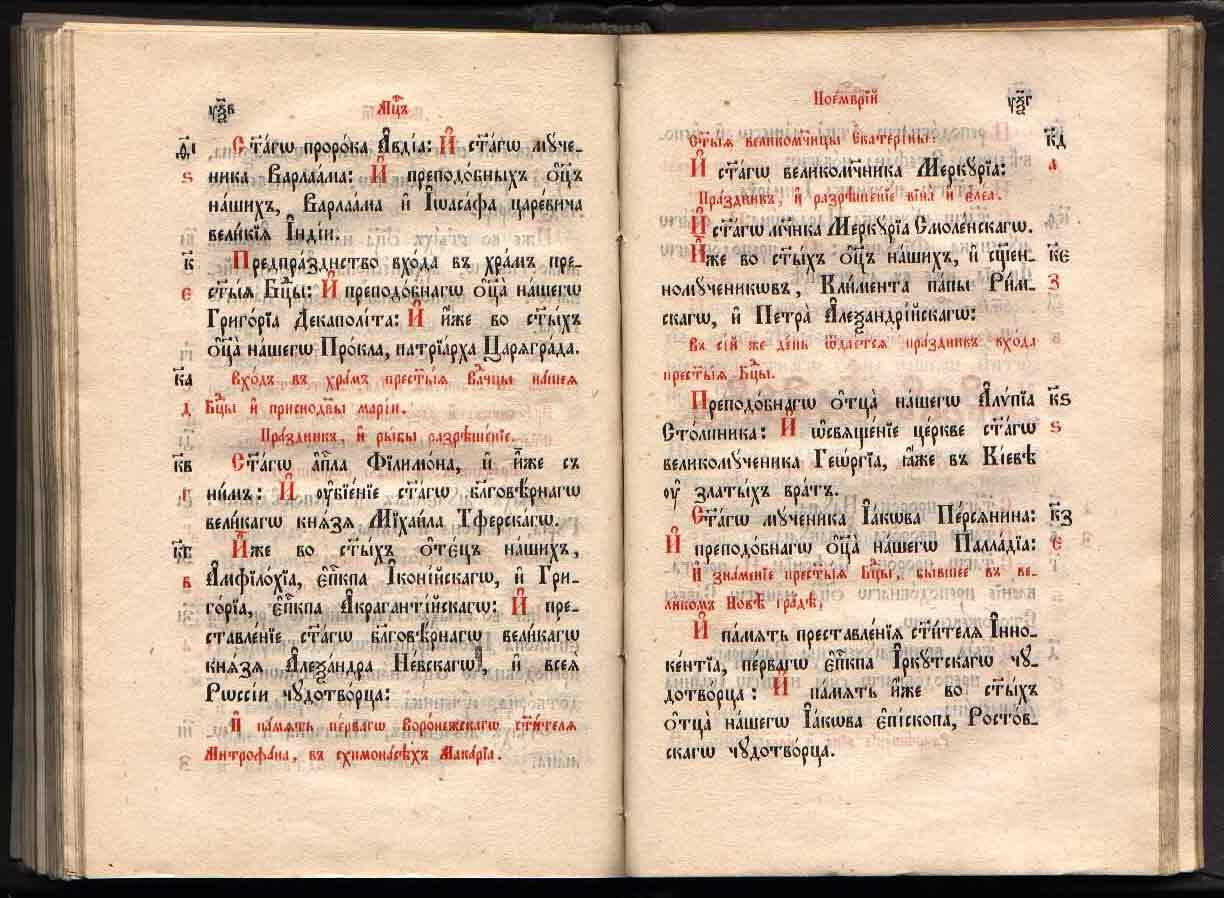 у҃ѯв Мц҇ъ
ѳ҃і Ст҃а́гѡ проро́ка А҆вді́а: И҆ ст҃а́гѡ мꙋ́че-
ѕ ника Варлаа́ма: И҆ преподо́бныхъ ѻ҆ц҃ъ
на́шихъ, Варлаа́ма и҆ І҆ѡаса́фа царе́вича
вели́кїѧ І҆нді́и.
к҃ Предпра́зднство вхо́да въ хра́мъ пре-
є ст҃ы́ѧ Бц҃ы: И҆ преподо́бнагѡ ѻ҆ц҃а̀ на́шегѡ
Григо́рїа Декаполі́та: И҆ и҆́же во ст҃ы́хъ
ѻ҆ц҃а̀ на́шегѡ Про́кла, патрїа́рха Царѧгра́да.
к҃а Вхо́дъ въ хра́мъ прест҃ы́ѧ Влⷣчцы на́шеѧ
д Бц҃ы и҆ приснодв҃ы марі́и.
Пра́здникъ, и҆ ры́бы разрѣше́нїе.
к҃в Ст҃а́гѡ а҆пⷭ҇ла Фїлимо́на, и҆ и҆́же съ
г ни́мъ: И҆ ᲂу҆бїе́нїе ст҃а́гѡ бл҃говѣ́рнагѡ
вели́кагѡ кнѧ́зѧ Мїхаи́ла Тфе́рскагѡ.
к҃г И҆́же во ст҃ы́хъ ѻ҆те́цъ на́шихъ,
в А҆мфїло́хїа, є҆пⷭ҇кпа І҆коні́йскагѡ, и҆ Гри-
го́рїа, є҆пⷭ҇кпа А҆краганті́йскагѡ: И҆ пре-
ставле́нїе ст҃а́гѡ бл҃говѣ́рнагѡ вели́кагѡ
кнѧ́зѧ А҆леѯа́ндра Не́вскагѡ, и҆ всеѧ̀
Рѡссі́и чꙋдотво́рца:
И҆ па́мѧть пе́рвагѡ Воро́нежскагѡ ст҃и́телѧ
Митрофа́на, въ схимонасѣ́хъ Мака́рїа.
Ное́мврїй у҃ѯг
Ст҃ы́ѧ великомч҃ницы Є҆катері́ны. к҃д
И҆ ст҃а́гѡ великомч҃ника Меркꙋ́рїа: а
Пра́здникъ, и҆ разрѣше́нїе вїна̀ и҆ є҆ле́а.
И҆ ст҃а́гѡ мч҃нка Меркꙋ́рїа Смоле́нскагѡ.
И҆́же во ст҃ы́хъ ѻ҆ц҃ъ на́шихъ, и҆ сщ҃ен- к҃є
номꙋ́ченикѡвъ, Кли́мента па́пы Ри́м- з
скагѡ, и҆ Петра̀ А҆леѯандрі́йскагѡ:
Въ сі́й же де́нь ѿдае́тсѧ пра́здникъ вхо́да
прест҃ы́ѧ Бц҃ы.
Преподо́бнагѡ ѻ҆тца̀ на́шегѡ А҆лѵ́пїа к҃ѕ
Сто́лпника: И҆ ѡ҆свѧще́нїе це́ркве ст҃а́гѡ ѕ
великомꙋ́ченика Геѡ́ргїа, ꙗ҆́же въ Кі́евѣ
ᲂу҆ златы́хъ вра́тъ.
Ст҃а́гѡ мꙋ́ченика І҆а́кѡва Персѧ́нина: к҃з
И҆ преподо́бнагѡ ѻ҆ц҃а̀ на́шегѡ Палла́дїа: є
И҆ зна́менїе прест҃ы́ѧ Бц҃ы, бы́вшее въ ве-
ли́комъ Но́вѣ гра́дѣ,
И҆ па́мѧть преставле́нїѧ ст҃и́телѧ І҆нно-
ке́нтїа, пе́рвагѡ є҆пⷭ҇кпа І҆ркꙋ́тскагѡ чꙋ-
дотво́рца: И҆ па́мѧть и҆́же во ст҃ы́хъ
ѻ҆тца̀ на́шегѡ І҆а́кѡва є҆пі́скопа, Росто́в-
скагѡ чꙋдотво́рца.